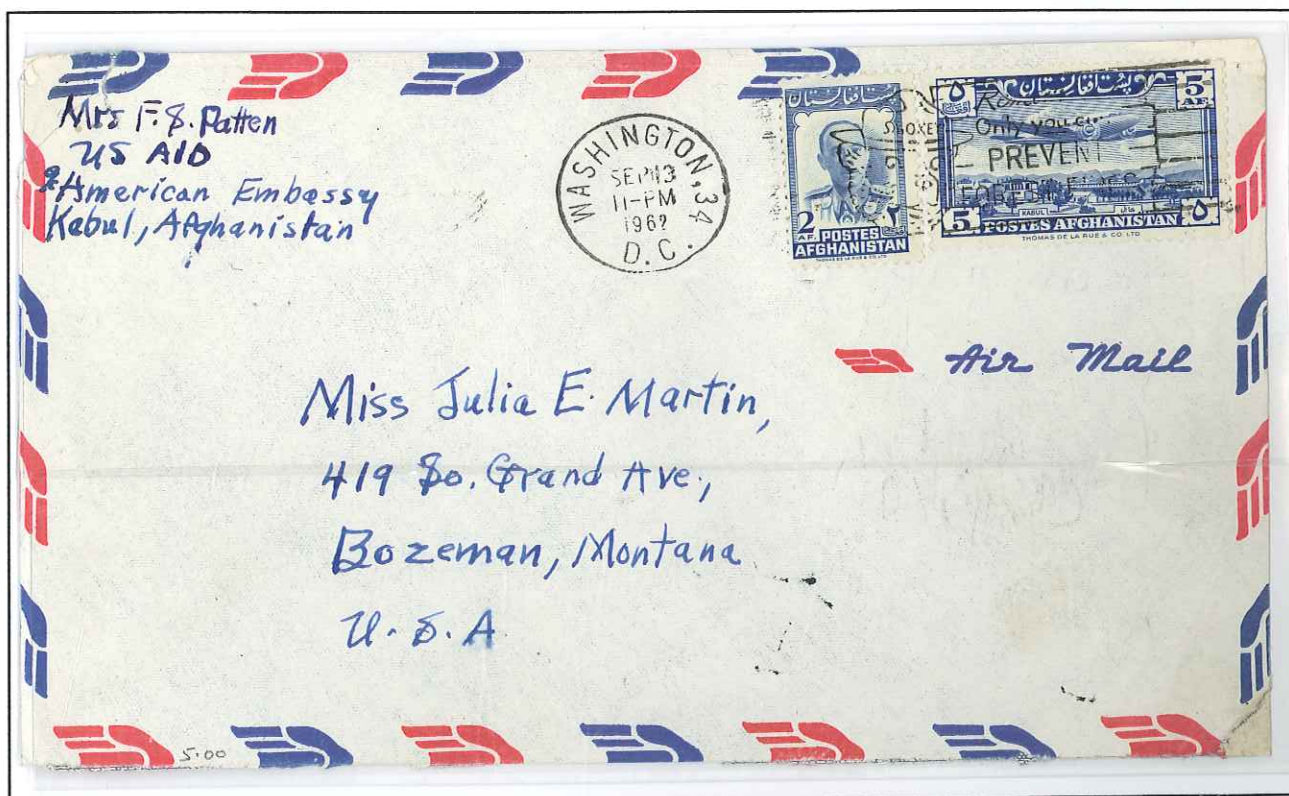 Mrs F. S. Patten
US AID
℅ American Embassy
Kabul, Afghanistan
WASHINGTON, 34
SEP 13
11-PM
1962
D.C.
پست افغانستان
2 AF. ٢
POSTES
AFGHANISTAN
THOMAS DE LA RUE & CO. LTD.
۵ پست افغانستان 5 AF.
SMOKEY
Only you can
PREVENT
FOREST FIRES
KABUL کابل
5 POSTES AFGHANISTAN ۵
THOMAS DE LA RUE & CO. LTD.
Air Mail
Miss Julia E. Martin,
419 So. Grand Ave.,
Bozeman, Montana
U.S.A
5.00